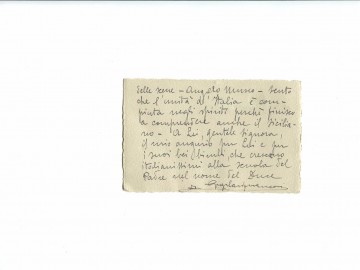 delle scene - Angelo Musco - sento
che l'unità d'Italia è com-
piuta negli spiriti perchè finisco
a comprendere anche il sicilia-
no - A Lei, gentile signora,
il mio augurio per Lei e per
i suoi bei bimbi che crescono
italianissimi alla scuola del
Padre e nel nome del Duce